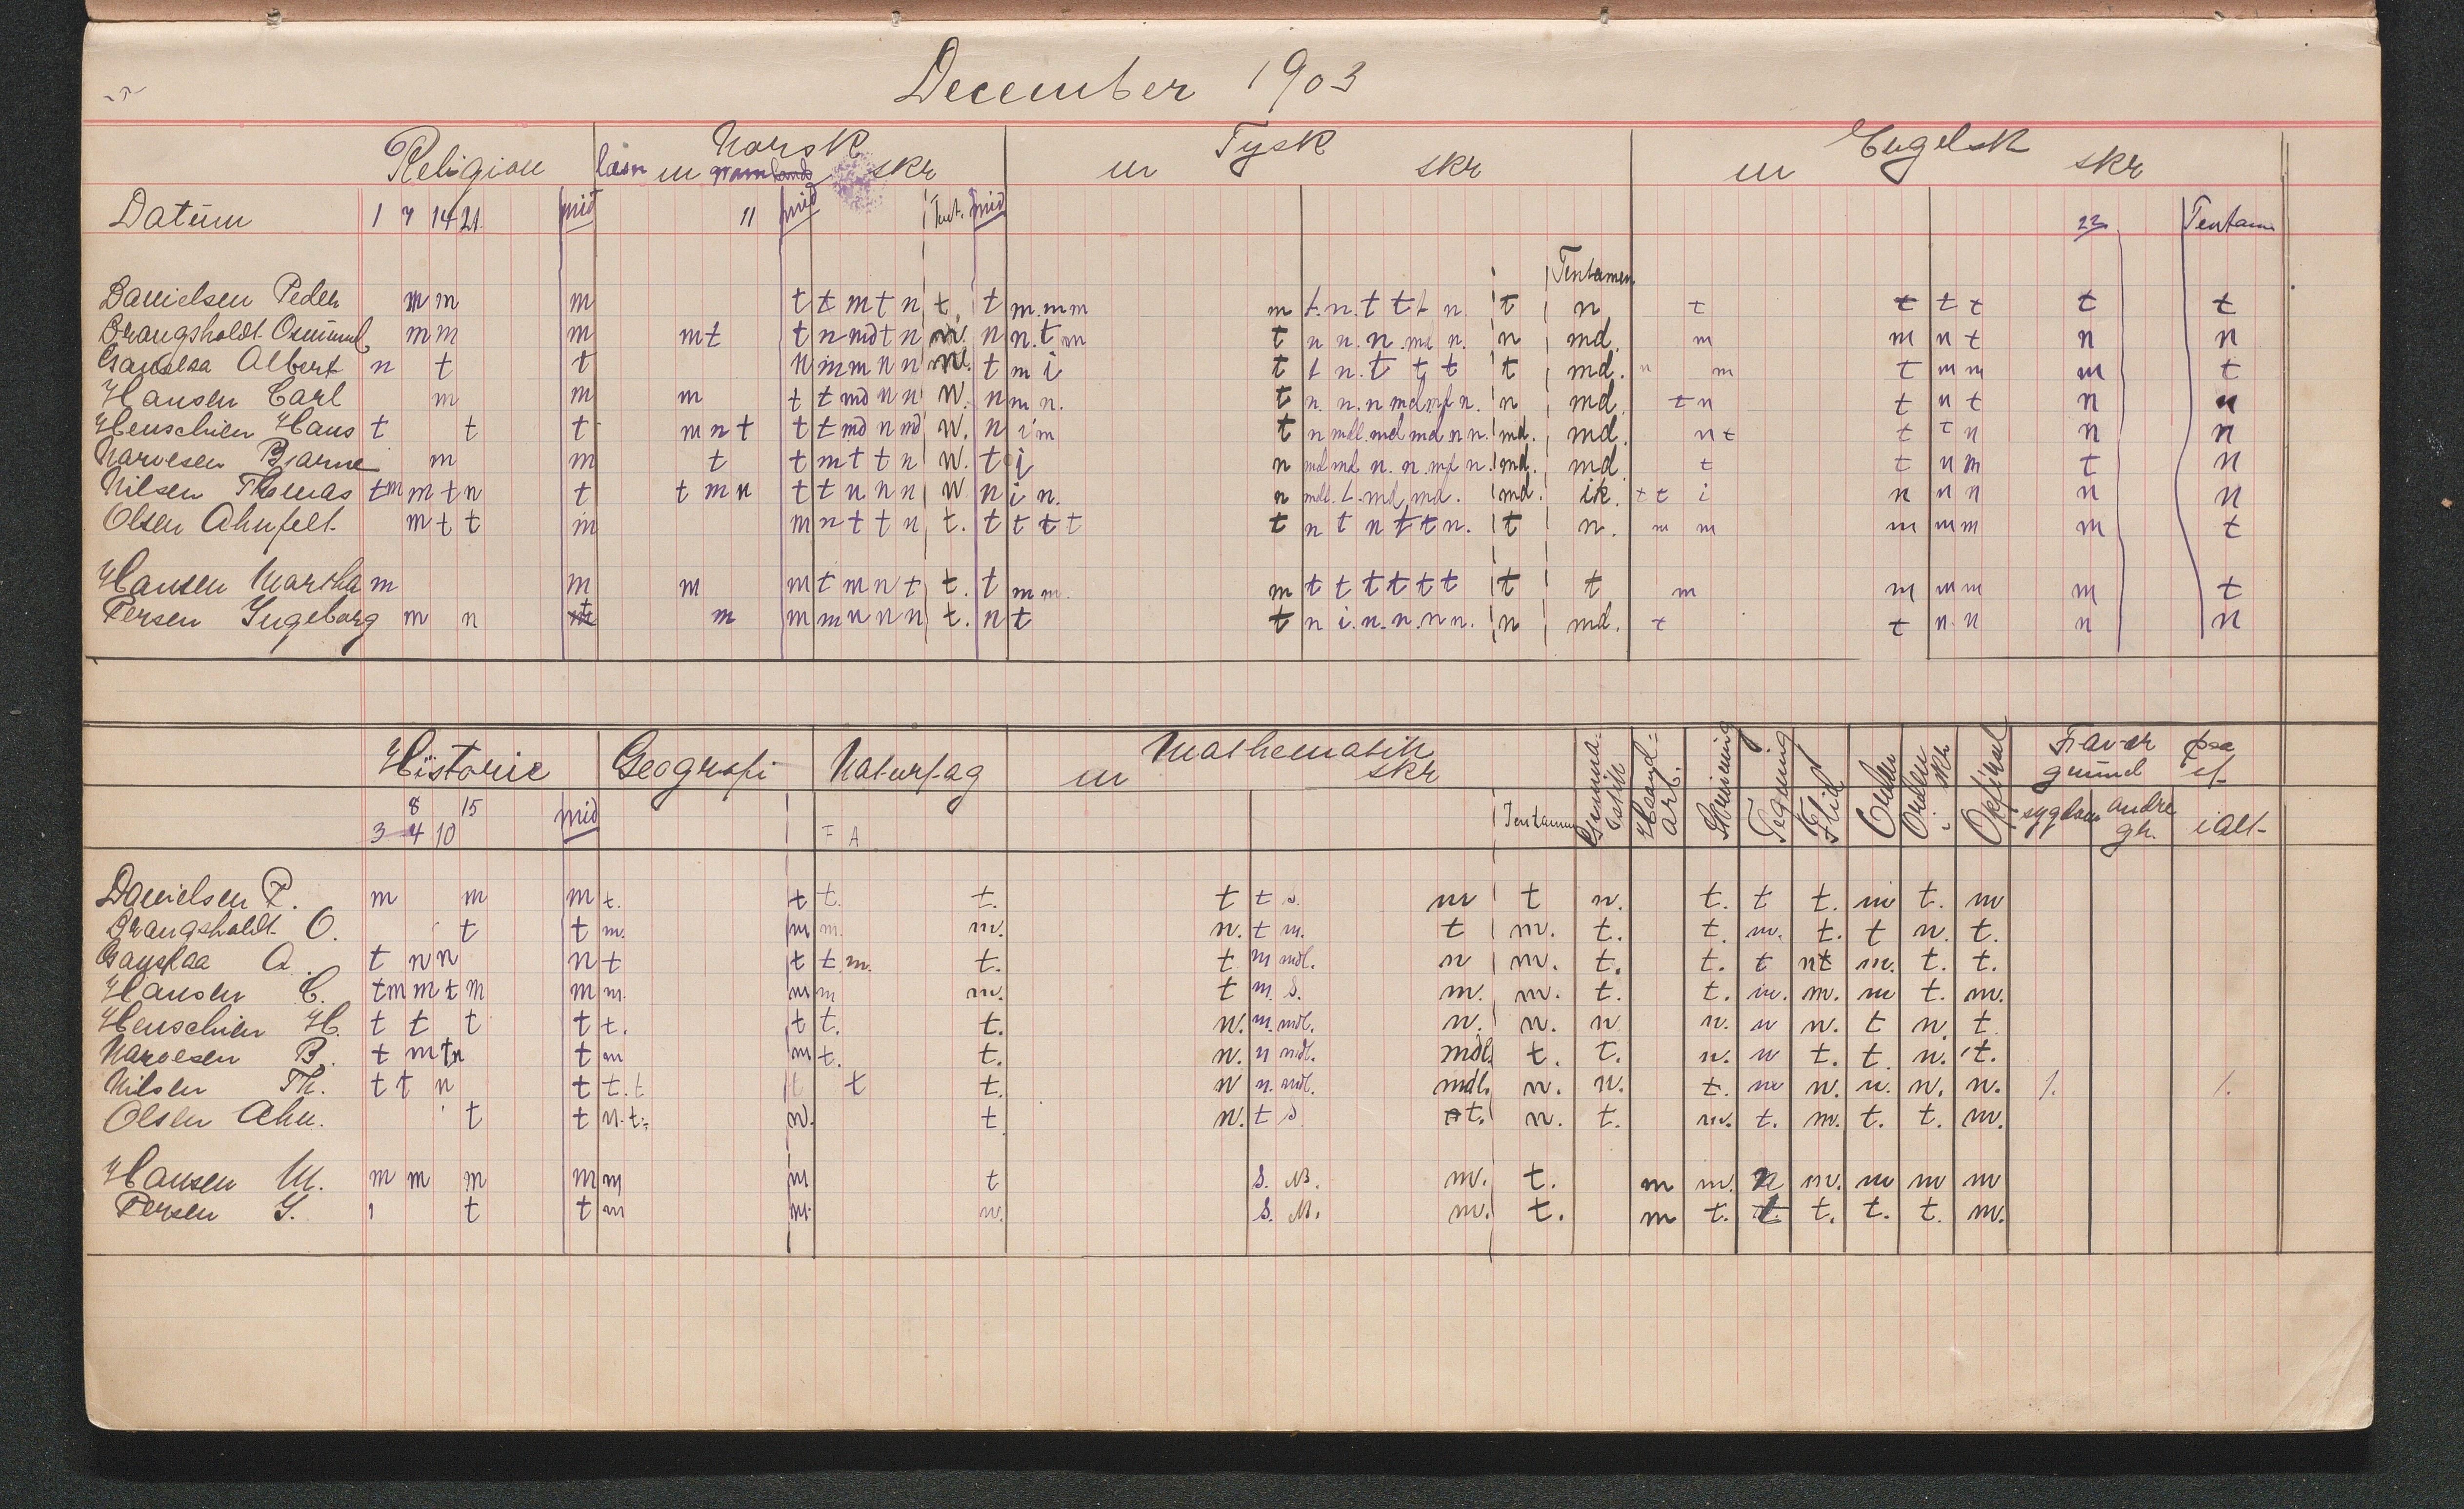 December 1903
Religion Norsk Tysk Engelsk
læsn m gram skr m skr m skr
Datum 1 7 14 21 mid 11 mid Tent. mid 22 Tentam
Tentamen
Danielsen Peder m m m t t m t n t. t m. m m m t. n. t t t n. t n t t t t t t
Drangsholdt Osmund m m m m t t n md t n n n. t m t n n. n. md n. n md. m m n t n n
Albert n t t n i m m n n t m i t t n. t t t t md. n m t m m m t
Hansen Carl m m m t t md n n n m n. t n. n. n md md n. n md t n t n t n n
Henschien Hans t t t m n t t t md n md n i m t n mdl. md md n n. md. md. n t t t n n n
Narvesen Bjarne m m t t m t t n t i n md md n. n. md n. md. md t t n m t n
Nilsen Thomas t m m t n t t m n t t n n n n i n. n mdl. t. md md. md. ik. t t i n n n n n
Olsen Ahnfelt m t t m m n t t n t. t t t t t n t n t t n. t n. m m m m m m t
Hansen Martha m m m m t m n t t. t m m. m t t t t t t t t m m m m m t
Tersen Ingeborg m n m m m n n n t. n t t n i. n. n. n n. n md. t t n. n n n
Historie Geografi Naturfag Mathematik Fravær paa
m skr grund af
8 15 mid Tentamen Gymnastik Haandarb. Skrivning Tegning Flid Orden Orden i skr. Opførsel sygdom andre gr. ialt
3 4 10 F A
Danielsen P. m m m t. t t. t. t t s. m t n. t. t t. m t. m
Drangsholdt O. t t m. m m. m. n. t m. t m. t. t. m. t. t n. t.
A. t n n n t t t m. t. t m mdl. n m. t. t. t nt m. t. t.
Hansen C. t m m t m m m. m m m. t m. s. m. m. t. t. m. m. m t. m.
Henschien H. t t t t t. t t. t. n. m. mdl. n. n. n n. n n. t n t
Narvesen B. t m t n t m m t. t. n. n mdl. mdl. t. t. n. n t. t. n. t.
Nilsen Th. t t n t t. t t t. n n. mdl. mdl. n. n. t. m n. n. n. n. 1. 1.
Olsen Ahn. t t n. t. n. t n. t s. t. n. t. m. t. m. t. t. m.
Hansen M. m m m m m m t s. M. m. t. m m. n m. m m m
Tersen I. 1 t t m m. n. s. M. m. t. m t. t. t. t. t. m.